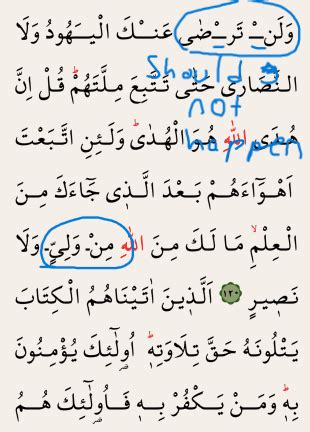 وَلَنْ تَرْضٰى عَنْكَ الْيَهُودُ وَلَا
Should
النَّصَارٰى حَتّٰى تَتَّبِعَ مِلَّتَهُمْۜ قُلْ اِنَّ
not
هُدَى اللّٰهِ هُوَ الْهُدٰىۜ وَلَئِنِ اتَّبَعْتَ
happen
اَهْوَٓاءَهُمْ بَعْدَ الَّذٖى جَٓاءَكَ مِنَ
الْعِلْمِۙ مَا لَكَ مِنَ اللّٰهِ مِنْ وَلِىٍّ وَلَا
نَصٖيرٍ ﴿١٢٠﴾ اَلَّذٖينَ اٰتَيْنَاهُمُ الْكِتَابَ
يَتْلُونَهُ حَقَّ تِلَاوَتِهٖۜ اُو۬لٰٓئِكَ يُؤْمِنُونَ
بِهٖۜ وَمَنْ يَكْفُرْ بِهٖ فَاُو۬لٰٓئِكَ هُمُ